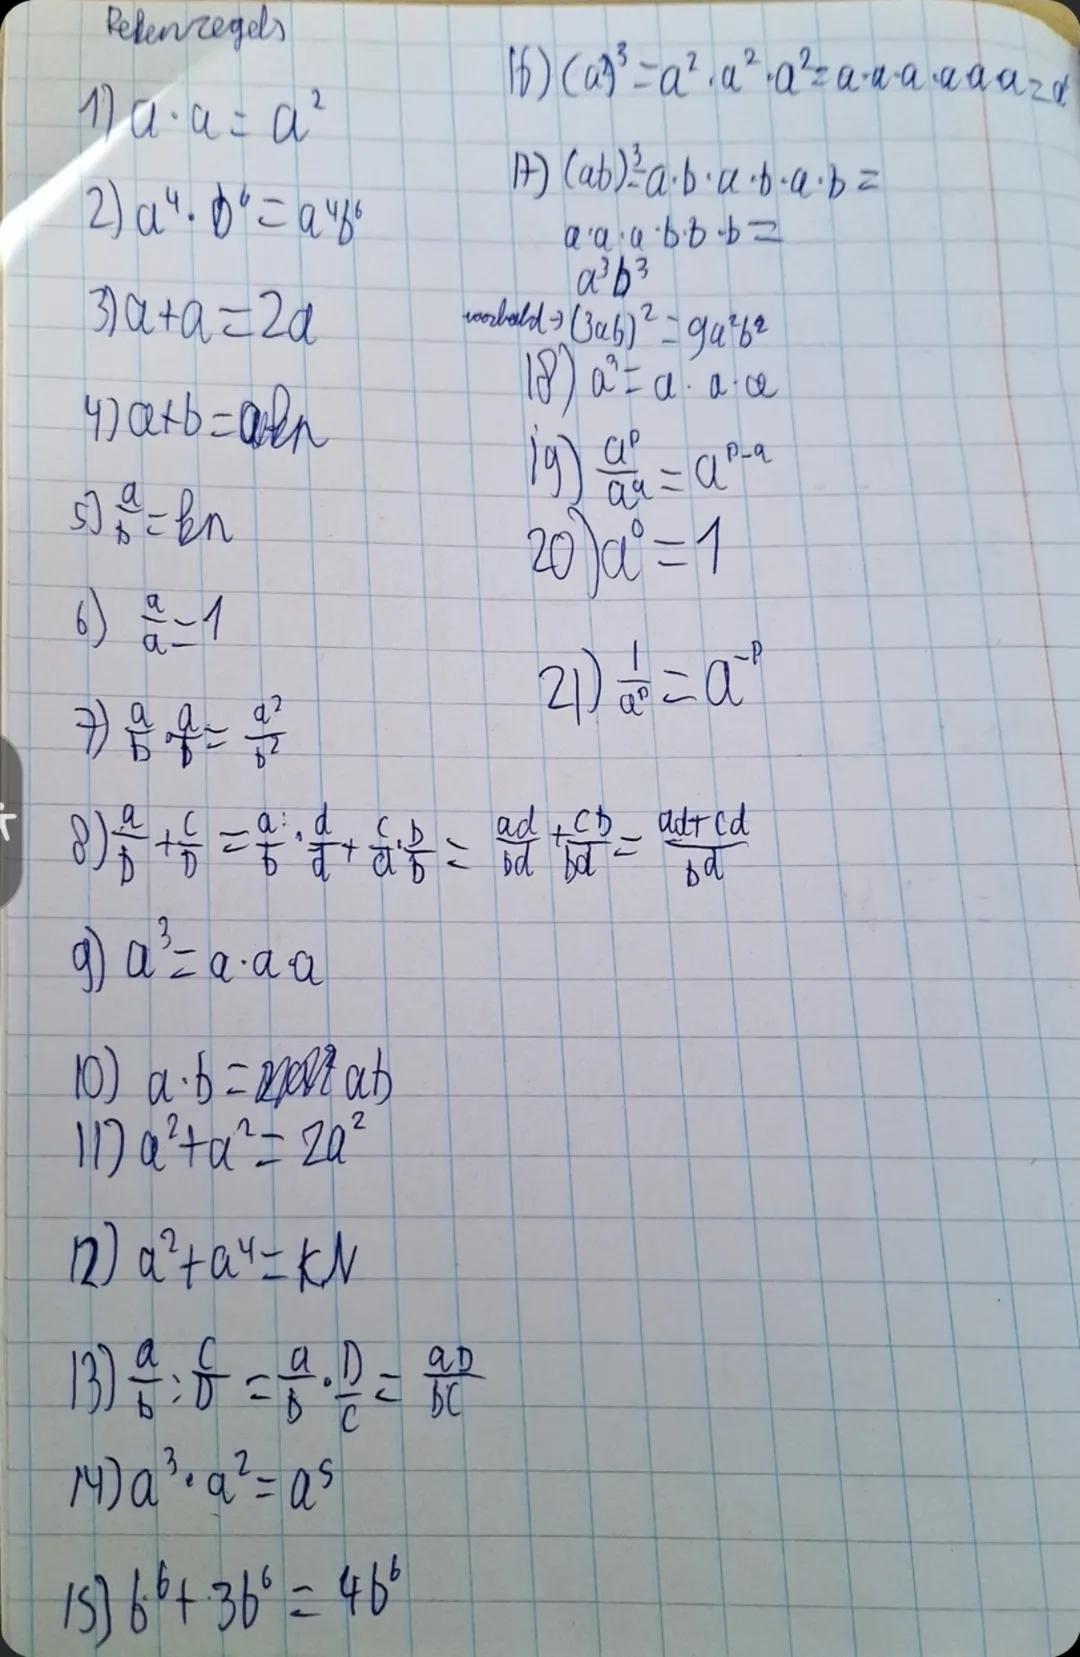 Rekenregels
1) a · a = a²
2) a⁴ · b⁶ = a⁴b⁶
3) a + a = 2a
4) a + b = kn
5) a/b = kn
6) a/a = 1
7) a/b · a/b = a²/b²
8) a/b + c/D = a/b · d/d + c/d · b/b = ad/bd + cb/bd = ad+cd/bd
9) a³ = a · a · a
10) a · b = ab
11) a² + a² = 2a²
12) a² + a⁴ = kN
13) a/b : C/D = a/b · D/C = aD/bC
14) a³ · a² = a⁵
15) b⁶ + 3b⁶ = 4b⁶
16) (a²)³ = a² · a² · a² = a · a · a · a a a =
17) (ab)³ = a · b · a · b · a · b =
a · a · a · b · b · b =
a³b³
voorbeeld → (3ab)² = 9a²b²
18) a³ = a · a · a
19) aᵖ/a^q = a^(p-q)
20) a⁰ = 1
21) 1/aᵖ = a⁻ᵖ